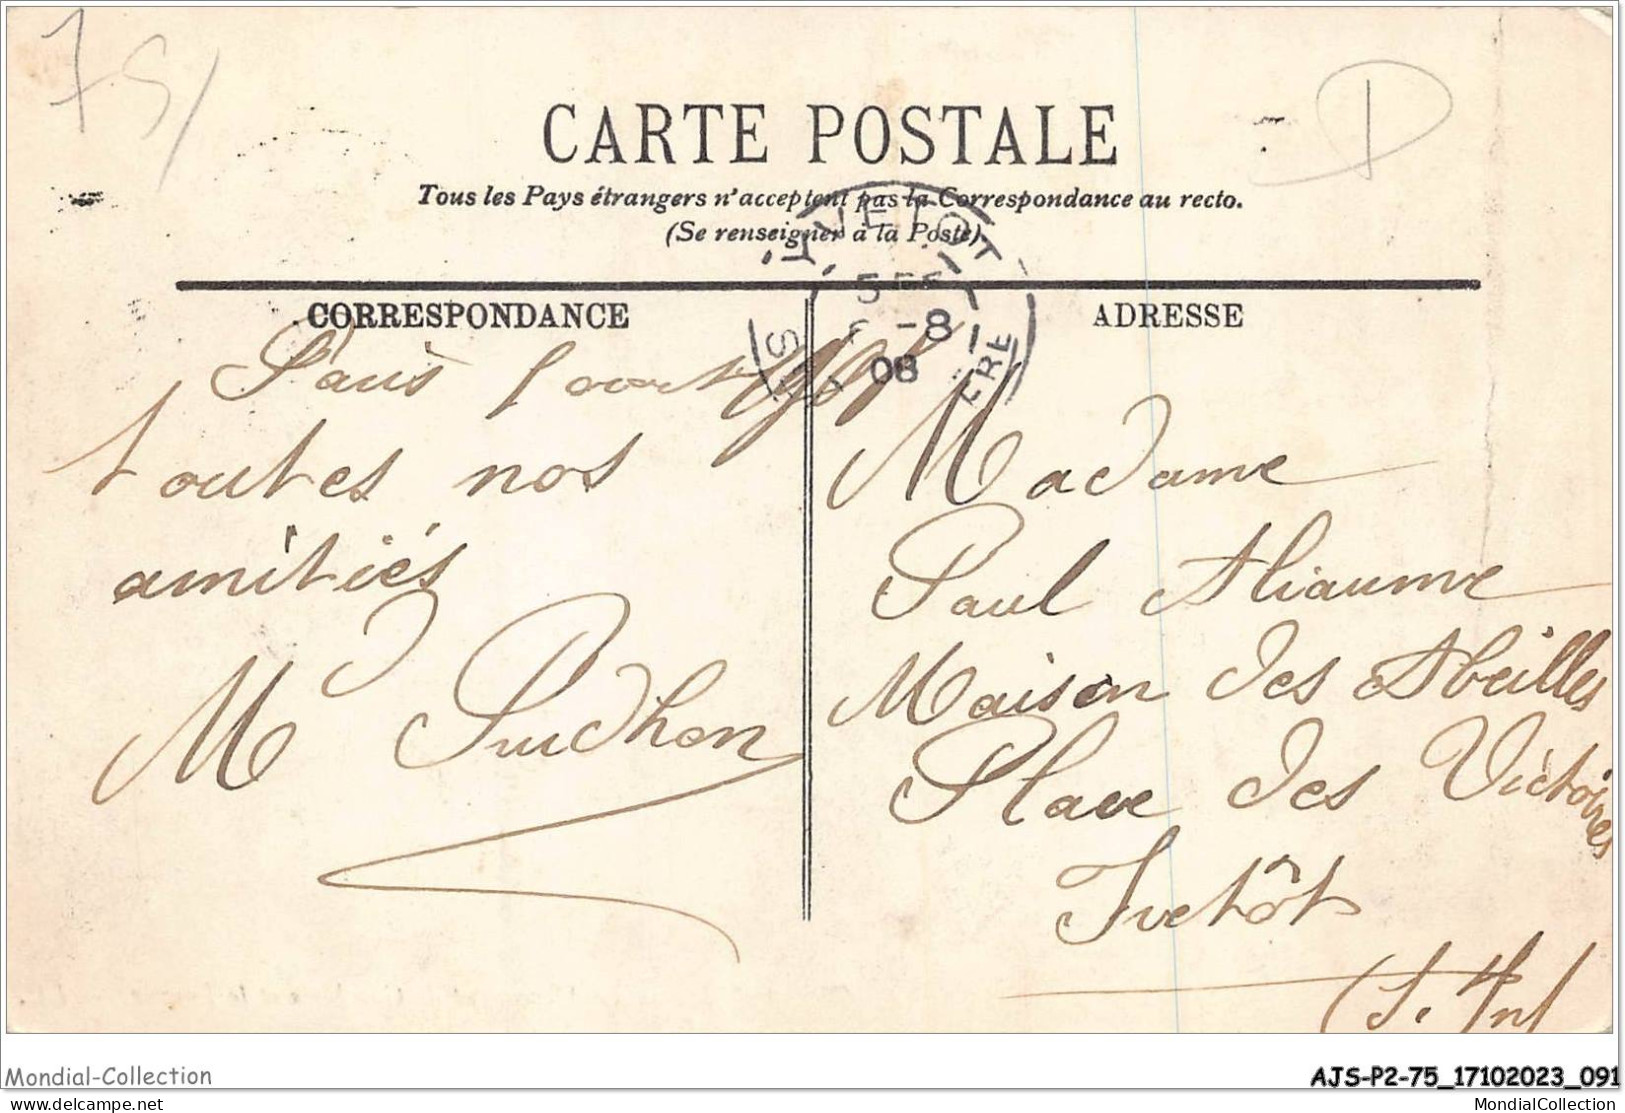 75
D
CARTE POSTALE
Tous les Pays étrangers n'acceptent pas la Correspondance au recto.
(Se renseigner à la Poste)
YVETOT
5E
-8
08
CORRESPONDANCE
ADRESSE
Paris 1 aout 1908
toutes nos
amitiés
M Prudhon
Madame
Paul Aliaume
Maison des Abeilles
Place des Victoires
Yvetôt
(S. Inf
Mondial-Collection
AJS-P2-75_17102023_091
delcampe.net
MondialCollection